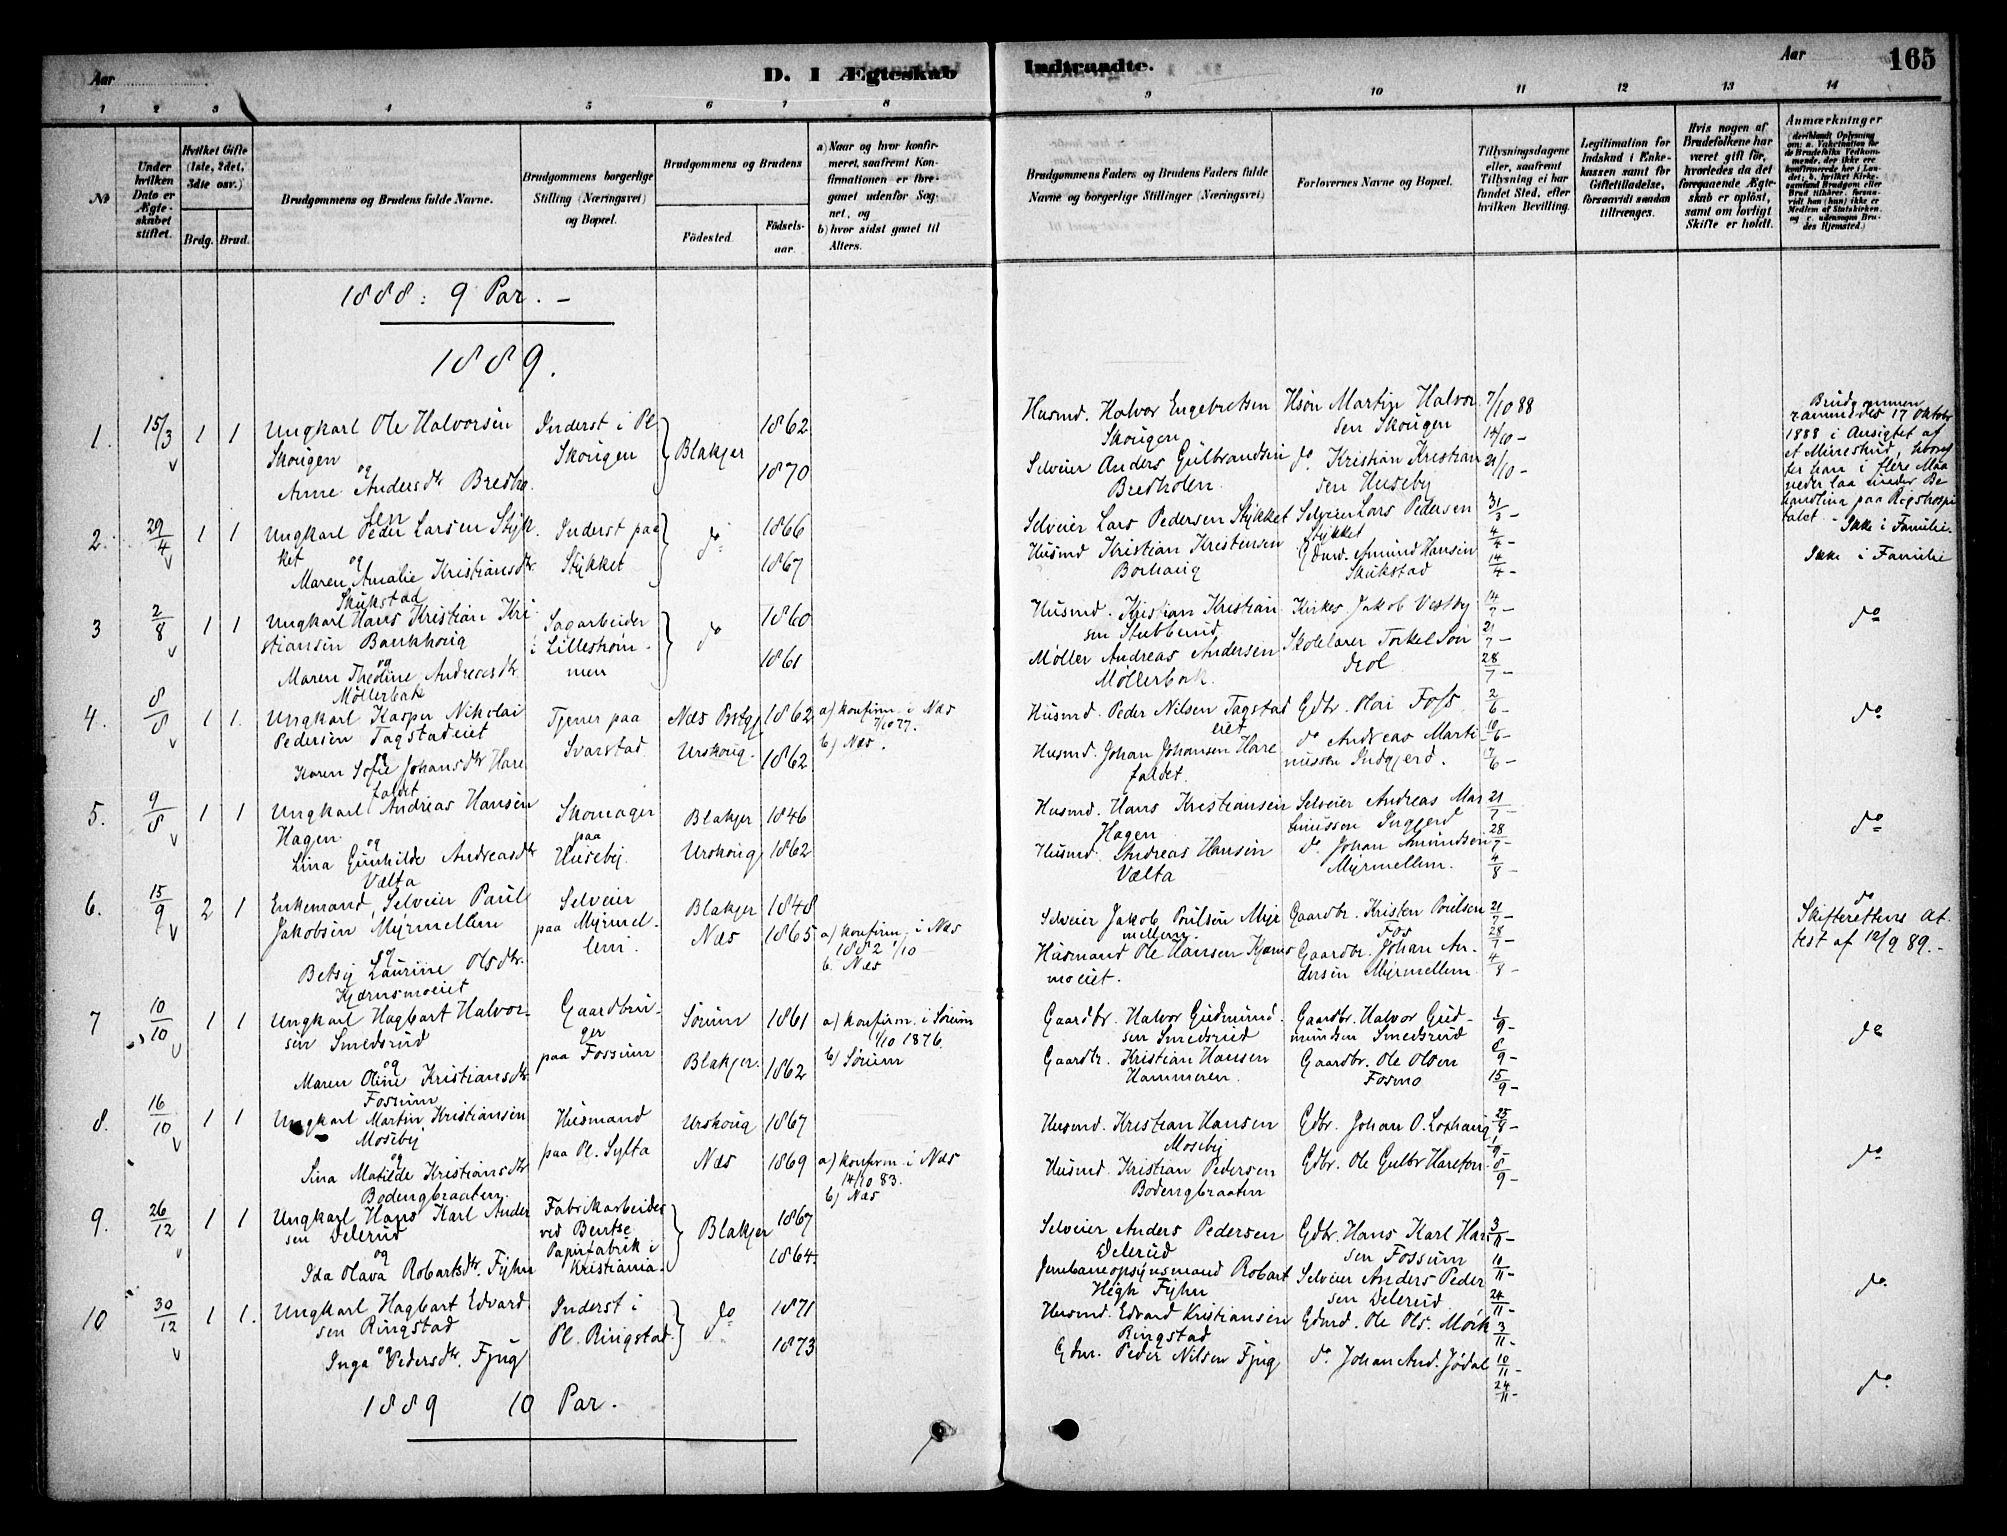 Aar
D. I Ægteskab
Indtraadte.
Aar
165
1 2 3 4 5 6 7 8 9 10 11 12 13 14
№
Under hvilken Dato er Ægteskabet stiftet.
Hvilket Gifte (1ste, 2det, 3die osv.)
Brdg. Brud.
Brudgommens og Brudens fulde Navne.
Brudgommens borgerlige Stilling (Næringsvei) og Bopæl.
Brudgommens og Brudens
Födested.
Födselsaar.
a) Naar og hvor konfirmeret, saafremt Konfirmationen er foregaaet udenfor Sognet, og
b) hvor sidst gaaet til Alters.
Brudgommens Faders og Brudens Faders fulde Navne og borgerlige Stillinger (Næringsvei)
Forlovernes Navne og Bopæl.
Tillysningsdagene eller, saafremt Tillysning ei har fundet Sted, efter hvilken Bevilling.
Legitimation for Indskud i Enkekassen samt for Giftetilladelse, forsaavidt saadan tiltrænges.
Hvis nogen af Brudefolkene har været gift før, hvorledes da det foregaaende Ægteskab er oplöst, samt om lovligt Skifte er holdt.
Anmærkninger
1888: 9 Par. –
1889.
1. 15/3 1 1
Ungkarl Ole Halvorsen
Skougen
og
Anne Andersdtr Bredho
len
Inderst i Pl
Skougen
Blakjer
1862
1870
Husmd. Halvor Engebretsen
Skougen
Selveier Anders Gulbrandsen
Bredholen.
Hsøn Martin Halvor
sen Skougen
do. Kristian Kristian
sen Huseby
7/10 88
14/10 –
21/10 –
Brudgommen
17 Oktober
1888 i Ansigtet af
et Mineskud, hvoref
ter han i flere Maa
neder laa under Be
handling paa Rigshospi
talet – Ikke i Familie
2. 29/4 1 1
Ungkarl Peder Larsen Stÿk
ket
og
Maren Amalie Kristiansdtr.
Skukstad
Inderst paa
Stykket
do
1866
1867
Selveier Lars Pedersen Stykket
Husmd Kristian Kristensen
Borhaug
Selveier Lars Pedersen
Stykket
Gdmd. Amund Hansen
Skukstad
31/3 –
4/4 –
14/4 –
Ikke i Familie
3 2/8 1 1
Ungkarl Hans Kristian Kri
stiansen Bankhoug
og
Maren Theoline Andreasdtr.
Möllerbak
Sagarbeider
i Lillestrøm
men
do
1860
1861
Husmd. Kristian Kristian
sen Stubberud
Møller Andreas Andersen
Møllerbak.
Kirkes. Jakob Vestby
Skolelærer Torkel Søn
derol
14/7 –
21/7 –
28/7 –
do
4. 8/8 1 1.
Ungkarl Kasper Nikolai
Pedersen Tagstadeiet
og
Karen Sofie Johansdtr Hare
faldet
Tjener paa
Svarstad
Næs Prstgj
Urskoug.
1862
1862
a) konfirm. i Næs
7/10 77.
b) Næs.
Husmd. Peder Nilsen Tagstad
eiet
Husmd. Johan Johansen Hare
faldet.
Gdbr. Olai Foss
do Andreas Marti
nussen Indgjerd.
2/6 –
10/6 –
17/6 –
do
5. 9/8 1 1
Ungkarl Andreas Hansen
Hagen
og
Lina Gunhilde Andreasdtr
Vælta
Skomager
paa
Huseby.
Blakjer
Urskoug
1846
1862
Husmd. Hans Kristiansen
Hagen
Husmd. Andreas Hansen
Vælta
Selveier Andreas Mar
tinussen Ingjerd
do Johan Amundsen
Myrmellem.
21/7 –
28/7 –
4/8 –
do
6. 15/9 2 1
Enkemand, Selveier Paul
Jakobsen Myrmellem
og
Betsy Laurine Olsdtr.
Kjærnsmoeiet
Selveier
paa Myrmel
lem.
Blakjer
Næs
1848
1865
a) konfirm. i Næs
1882 1/10
b. Næs
Selveier Jakob Poulsen Myr
mellem.
Husmand Ole Hansen Kjærns
moeiet.
Gaardbr. Kristen Poulsen
Fos
Gaardbr. Johan An
dersen Myrmellem
21/7 –
28/7 –
4/8 –
do
Skifterettens At
test af 12/9 89. –
7 10/10 1 1
Ungkarl Hagbart Halvor
sen Smedsrud
og
Maren Oline Kristiansdtr.
Fossum
Gaardbru
ger
paa Fossum
Sørum
Blakjer.
1861
1862
a) konfirm. i Sørum
1/10 1876.
b) Sørum
Gaardbr. Halvor Gudmund
sen Smedsrud
Gaardbr. Kristian Hansen
Hammeren.
Gaardbr. Halvor Gud
mundsen Smedsrud
Gaardbr. Ole Olsen
Fosmo
1/9 –
8/9 –
15/9 –
do
8. 16/10 1 1
Ungkarl Martin Kristiansen
Moseby
og
Lina Matilde Kristiansdtr
Bodengbraaten.
Husmand
paa Pl. Sylta
Urskoug
Næs
1867
1869
a) konfirm. i Næs
14/10 83.
b) Næs
Husmd. Kristian Hansen
Moseby
Husmd. Kristian Pedersen
Bodengbraaten
Gdbr. Johan O. Loxhaug
Gdbr. Ole Gulbr Hareton
25/8 –
8/9 –
do
9. 26/12 1 1
Ungkarl Hans Karl Ander
sen Delerud
og
Ida Olava Robartsdtr. Fyhn
Fabrikarbeider
ved Bentse
Papirfabrik i
Kristiania.
Blakjer
1867
1864.
Selveier Anders Pedersen
Delerud
Jernbaneopsynsmand Robart
Høgh Fyhn
Gdbr. Hans Karl Han
sen Fossum
Selveier Anders Peder
sen Delerud
3/11 –
10/11 –
24/11 –
do
10 30/12 1 1.
Ungkarl Hagbart Edvard
sen Ringstad
og
Inga Pedersdtr. Fjug
Inderst i
Pl. Ringstad.
do
1871
1873
Husmd. Edvard Kristiansen
Ringstad
Gdm. Peder Nilsen Fjug
Gdmd. Ole Ols. Mørk
do. Johan And. Jødal
3/11 –
10/11 –
24/11 –
do
1889 10 Par.